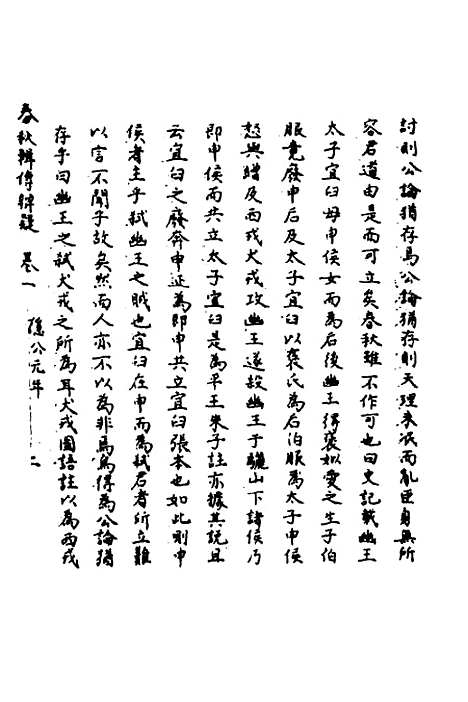 討則公論猶存焉公論猶存則天理未泯而亂臣身無所
容君道由是而可立矣春秋雖不作可也曰史記載幽王
太子宜臼母申侯女而為后後幽王得褒姒愛之生子伯
服竟廢申后及太子宜臼以褒氏為后伯服為太子申侯
怒與繒及西戎犬戎攻幽王遂殺幽王于驪山下諸侯乃
即申侯而共立太子宜臼是為平王朱子註亦據其說且
云宜臼之廢奔申証為即申共立宜臼張本也如此則申
侯者主乎弒幽王之賊也宜臼在申而為弒君者所立雖
以言不聞乎故矣然而人亦不以為非焉烏得為公論猶
存乎曰幽王之弒犬戎之所為耳犬戎國語註以為西戎
春秋輯傳辨疑 卷一 隱公元年 二